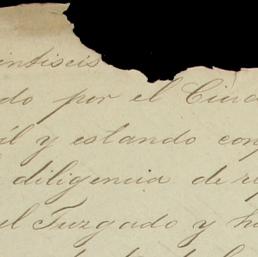 intiseis
do por el Ciud
il y estando con
diligencia de re
el Juzgado y h